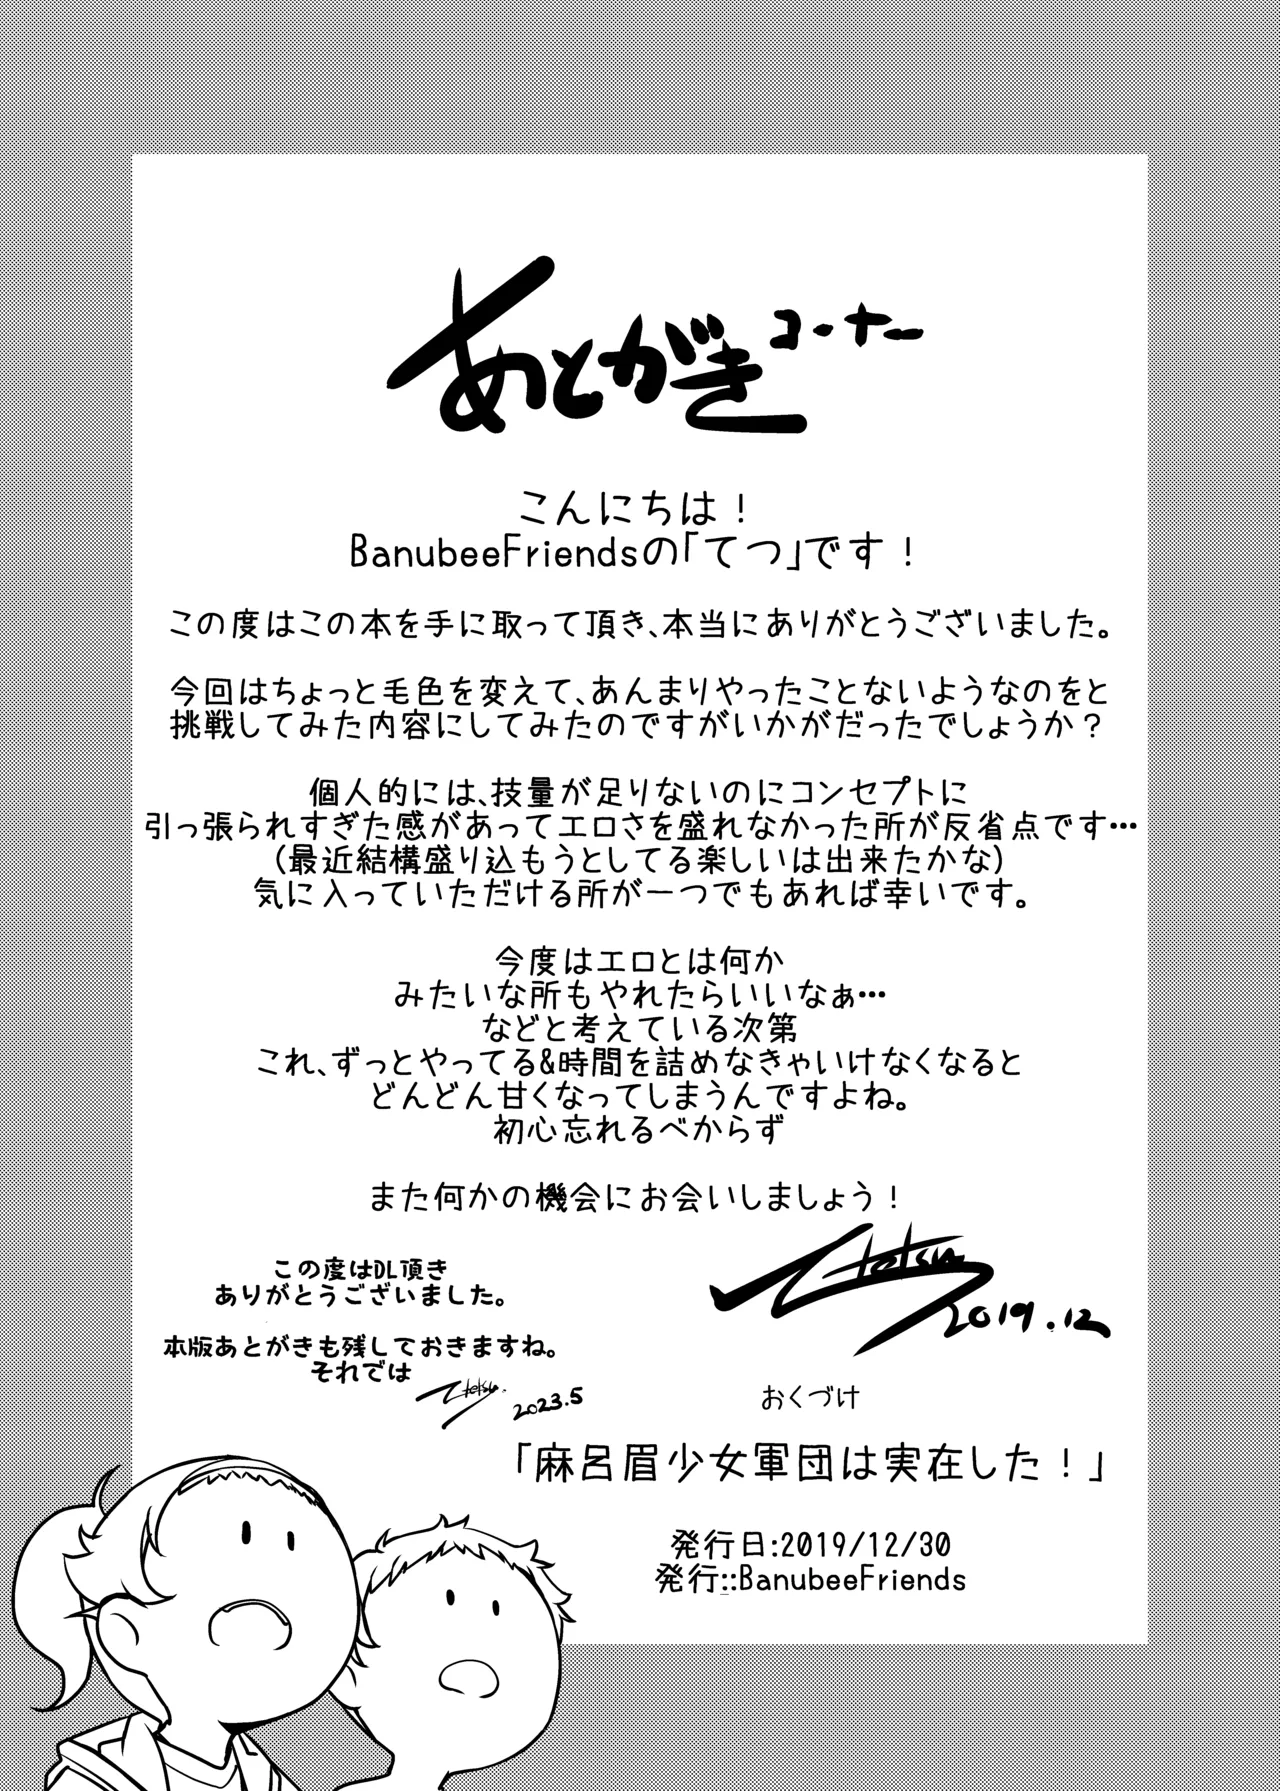 あとがきコーナー
こんにちは！
BanubeeFriendsの「てつ」です！
この度はこの本を手に取って頂き、本当にありがとうございました。
今回はちょっと毛色を変えて、あんまりやったことないようなのをと
挑戦してみた内容にしてみたのですがいかがだったでしょうか？
個人的には、技量が足りないのにコンセプトに
引っ張られすぎた感があってエロさを盛れなかった所が反省点です…
(最近結構盛り込もうとしてる楽しいは出来たかな)
気に入っていただける所が一つでもあれば幸いです。
今度はエロとは何か
みたいな所もやれたらいいなぁ…
などと考えている次第
これ、ずっとやってる&時間を詰めなきゃいけなくなると
どんどん甘くなってしまうんですよね。
初心忘れるべからず
また何かの機会にお会いしましょう！
tetsu
2019.12
この度はDL頂き
ありがとうございました。
本版あとがきも残しておきますね。
それでは
tetsu.
2023.5
おくづけ
「麻呂眉少女軍団は実在した！」
発行日:2019/12/30
発行::BanubeeFriends